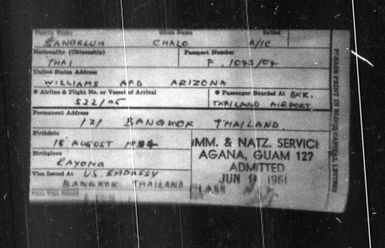 Family Name Given Name Initial
CHALO A/1C
Nationality (Citizenship) Passport Number
THAI P. 1043/04
United States Address
WILLIAMS AFB ARIZONA
Airline & Flight No. or Vessel of Arrival Passenger Boarded At BKK.
THAILAND AIRPORT.
Permanent Address
121 BANGKOK THAILAND.
Birthdate
18 AUGUST
Birthplace
RAYONG
Visa Issued at U.S. EMBASSY
BANGKOK THAILAND
IMM. & NATZ. SERVICE
AGANA, GUAM 127
ADMITTED
JUN 1961
CLASS